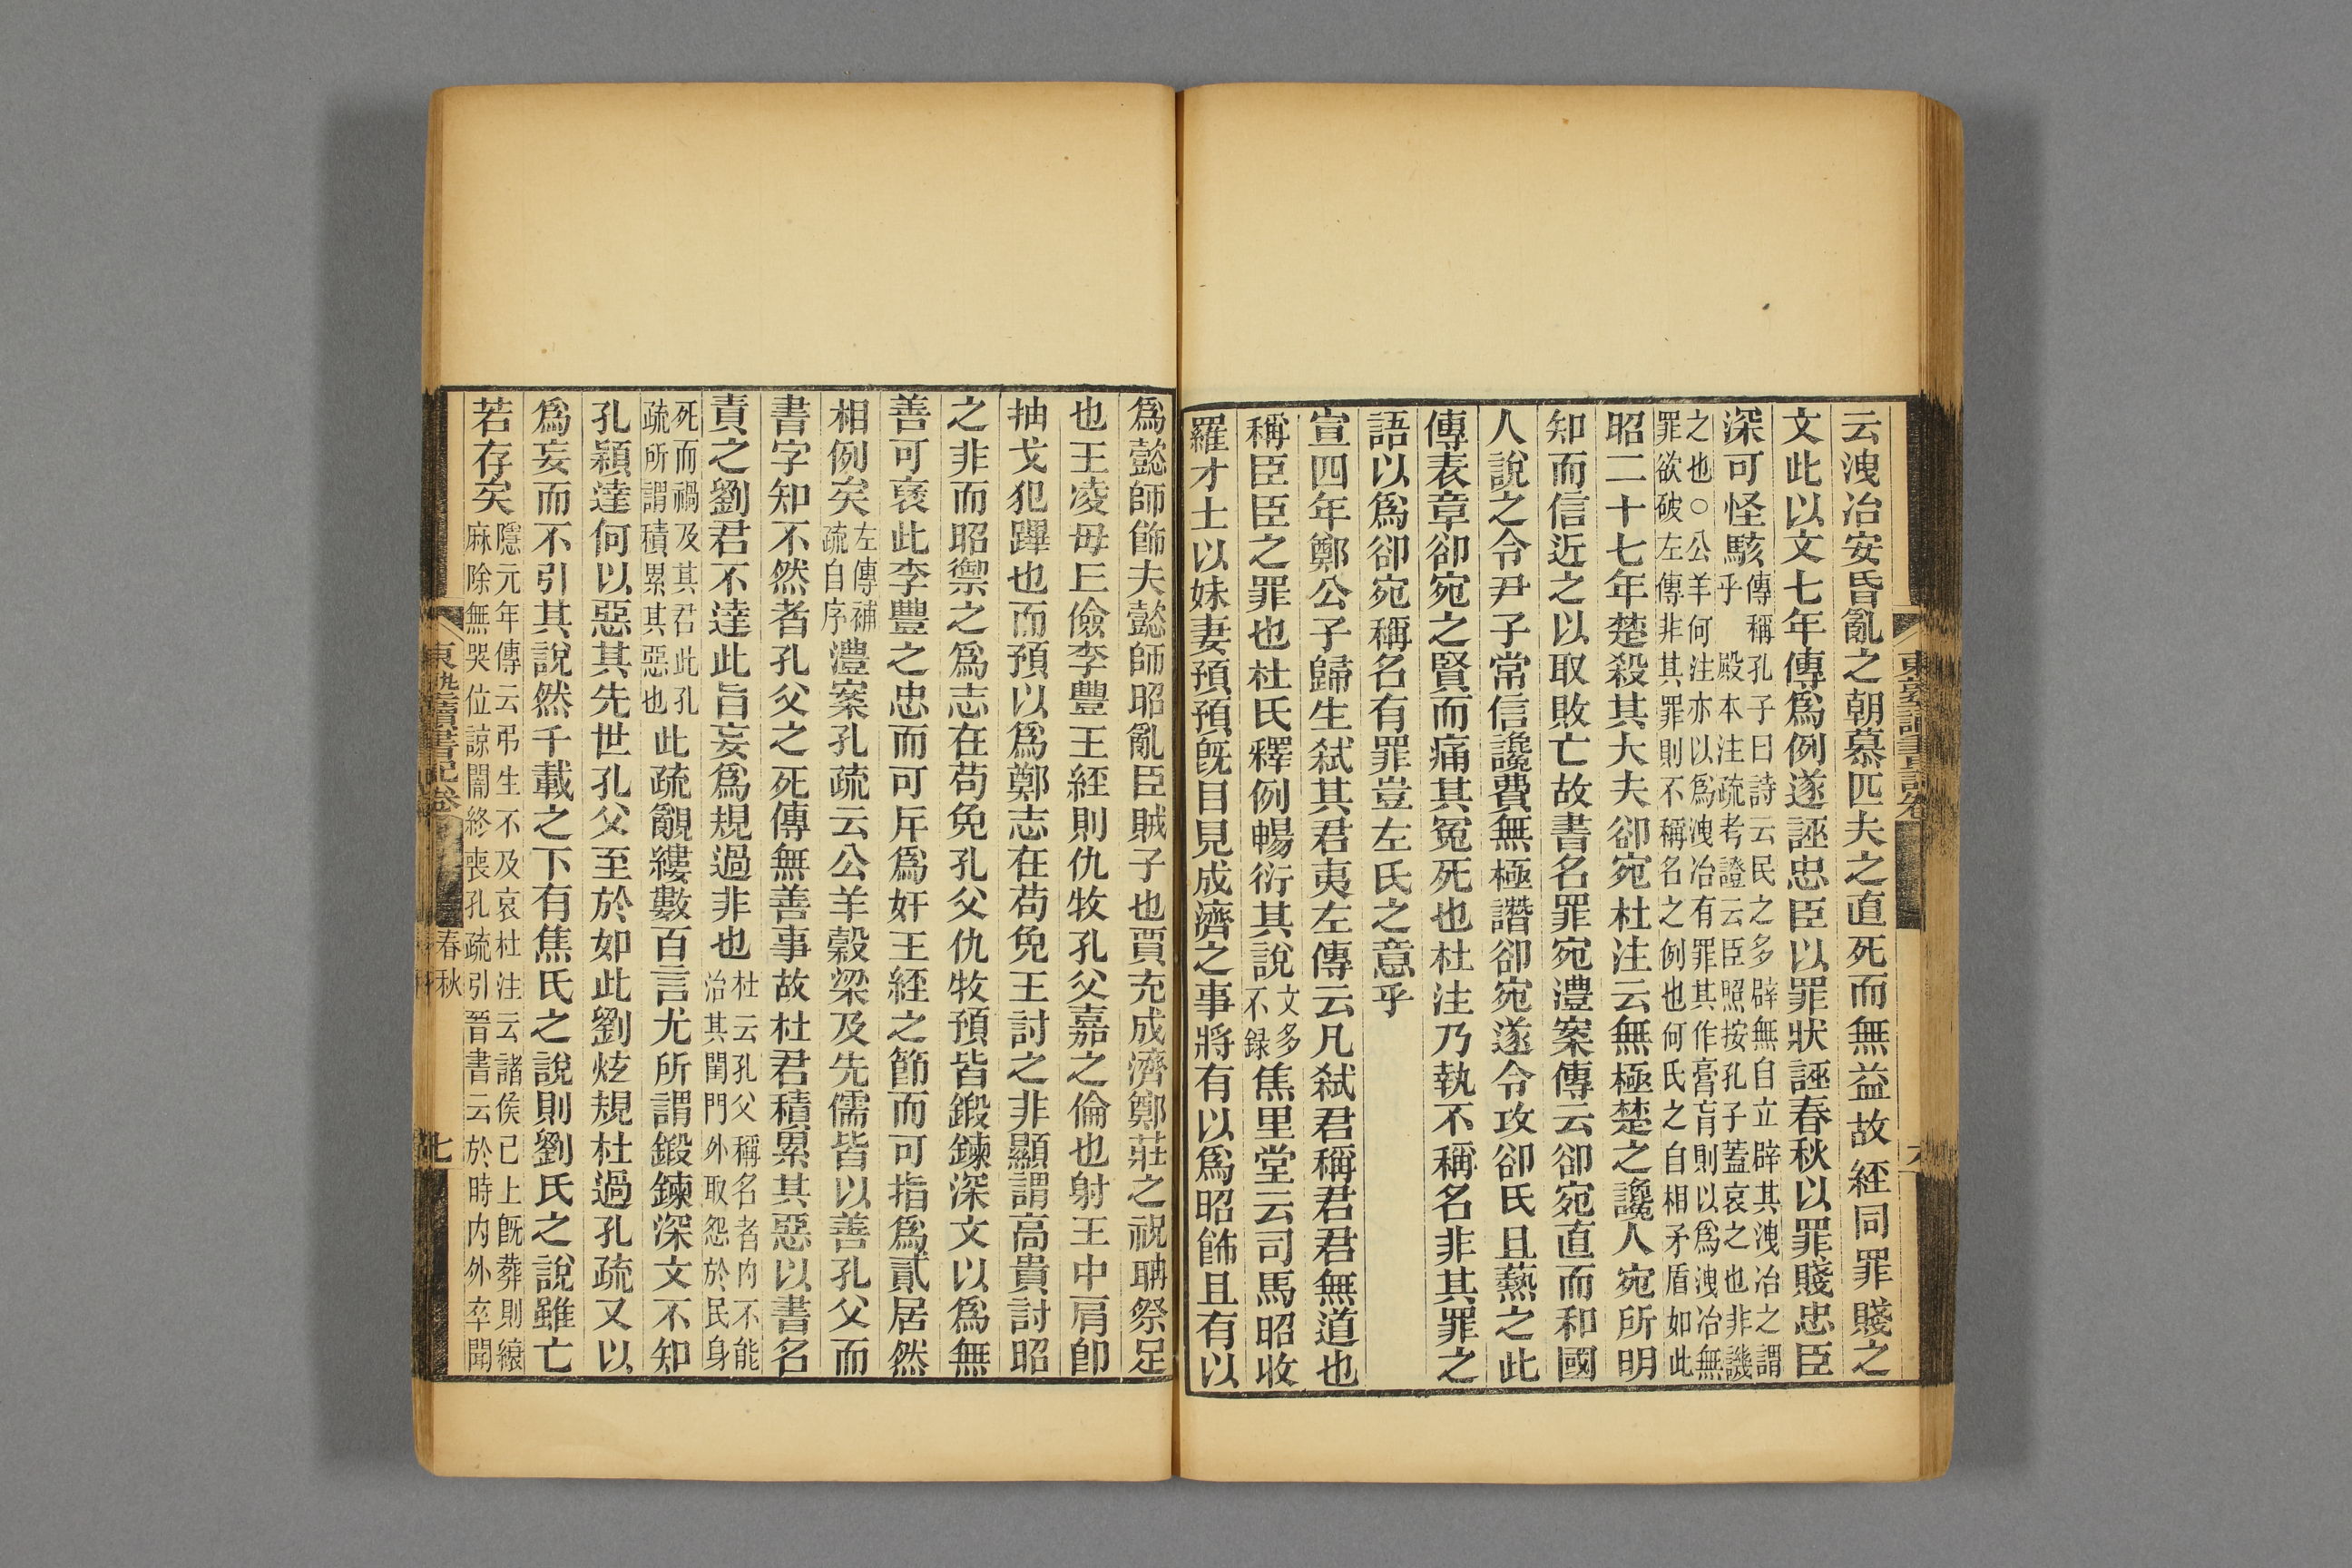 云洩冶安昏亂之朝慕匹夫之直死而無益故經同罪賤之
文此以文七年傳爲例遂誣忠臣以罪狀誣春秋以罪賤忠臣
深可怪駭傳稱孔子曰詩云民之多辟無自立辟其洩冶之謂
乎 殿本注疏考證云臣照按孔子蓋哀之也非譏
之也○公羊何注亦以爲洩冶有罪其作膏肓則以爲洩冶無
罪欲破左傳非其罪則不稱名之例也何氏之自相矛盾如此
昭二十七年楚殺其大夫郤宛杜注云無極楚之讒人宛所明
知而信近之以取敗亡故書名罪宛澧案傳云郤宛直而和國
人說之令尹子常信讒費無極譖郤宛遂令攻郤氏且爇之此
傳表章郤宛之賢而痛其冤死也杜注乃執不稱名非其罪之
語以爲郤宛稱名有罪豈左氏之意乎
宣四年鄭公子歸生弒其君夷左傳云凡弒君稱君君無道也
稱臣臣之罪也杜氏釋例暢衍其說文多
不錄焦里堂云司馬昭收
羅才士以妹妻預預旣目見成濟之事將有以爲昭飾且有以
爲懿師飾夫懿師昭亂臣賊子也賈充成濟鄭莊之祝聃祭足
也王凌毋丘儉李豐王經則仇牧孔父嘉之倫也射王中肩卽
抽戈犯蹕也而預以爲鄭志在苟免王討之非顯謂高貴討昭
之非而昭禦之爲志在苟免孔父仇牧預皆鍛鍊深文以爲無
善可襃此李豐之忠而可斥爲奸王經之節而可指爲貳居然
相例矣左傳補
疏自序澧案孔疏云公羊穀梁及先儒皆以善孔父而
書字知不然者孔父之死傳無善事故杜君積累其惡以書名
責之劉君不達此旨妄爲規過非也杜云孔父稱名者內不能
治其閨門外取怨於民身
死而禍及其君此孔
疏所謂積累其惡也此疏覼縷數百言尤所謂鍛鍊深文不知
孔穎達何以惡其先世孔父至於如此劉炫規杜過孔疏又以
爲妄而不引其說然千載之下有焦氏之說則劉氏之說雖亡
若存矣隱元年傳云弔生不及哀杜注云諸侯已上旣葬則縗
麻除無哭位諒闇終喪孔疏引晉書云於時內外卒聞
東塾讀書記卷
春秋
七